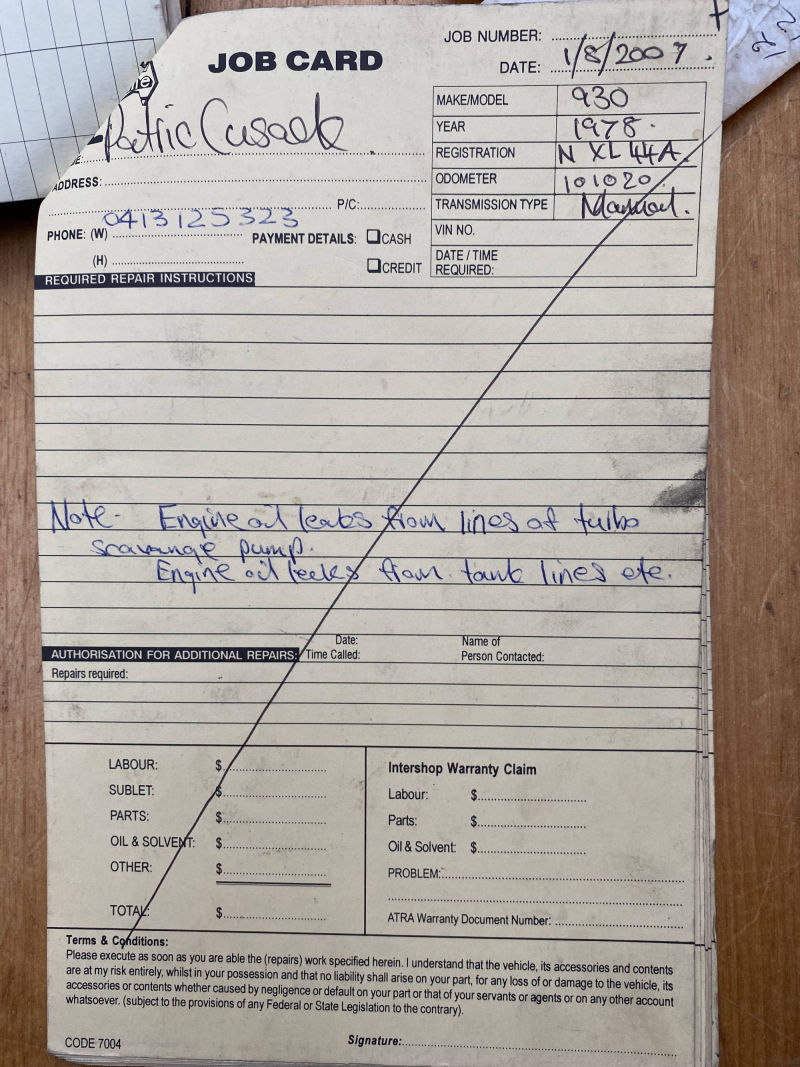 JOB CARD
JOB NUMBER:
DATE: 1/8/2007.
Patric Cusack.
MAKE/MODEL 930
YEAR 1978.
REGISTRATION NXL44A.
ODOMETER 101020.
TRANSMISSION TYPE Manual.
VIN NO.
DATE / TIME
REQUIRED:
ADDRESS:
P/C:
0413125323
PHONE: (W)
(H)
PAYMENT DETAILS: CASH
CREDIT
REQUIRED REPAIR INSTRUCTIONS
Note - Engine oil leaks from lines of turbo
scavange pump.
Engine oil leeks from tank lines etc.
AUTHORISATION FOR ADDITIONAL REPAIRS:
Date:
Time Called:
Name of
Person Contacted:
Repairs required:
LABOUR: $
SUBLET: $
PARTS: $
OIL & SOLVENT: $
OTHER: $
TOTAL: $
Intershop Warranty Claim
Labour: $
Parts: $
Oil & Solvent: $
PROBLEM:
ATRA Warranty Document Number:
Terms & Conditions:
Please execute as soon as you are able the (repairs) work specified herein. I understand that the vehicle, its accessories and contents
are at my risk entirely, whilst in your possession and that no liability shall arise on your part, for any loss of or damage to the vehicle, its
accessories or contents whether caused by negligence or default on your part or that of your servants or agents or on any other account
whatsoever. (subject to the provisions of any Federal or State Legislation to the contrary).
CODE 7004
Signature: